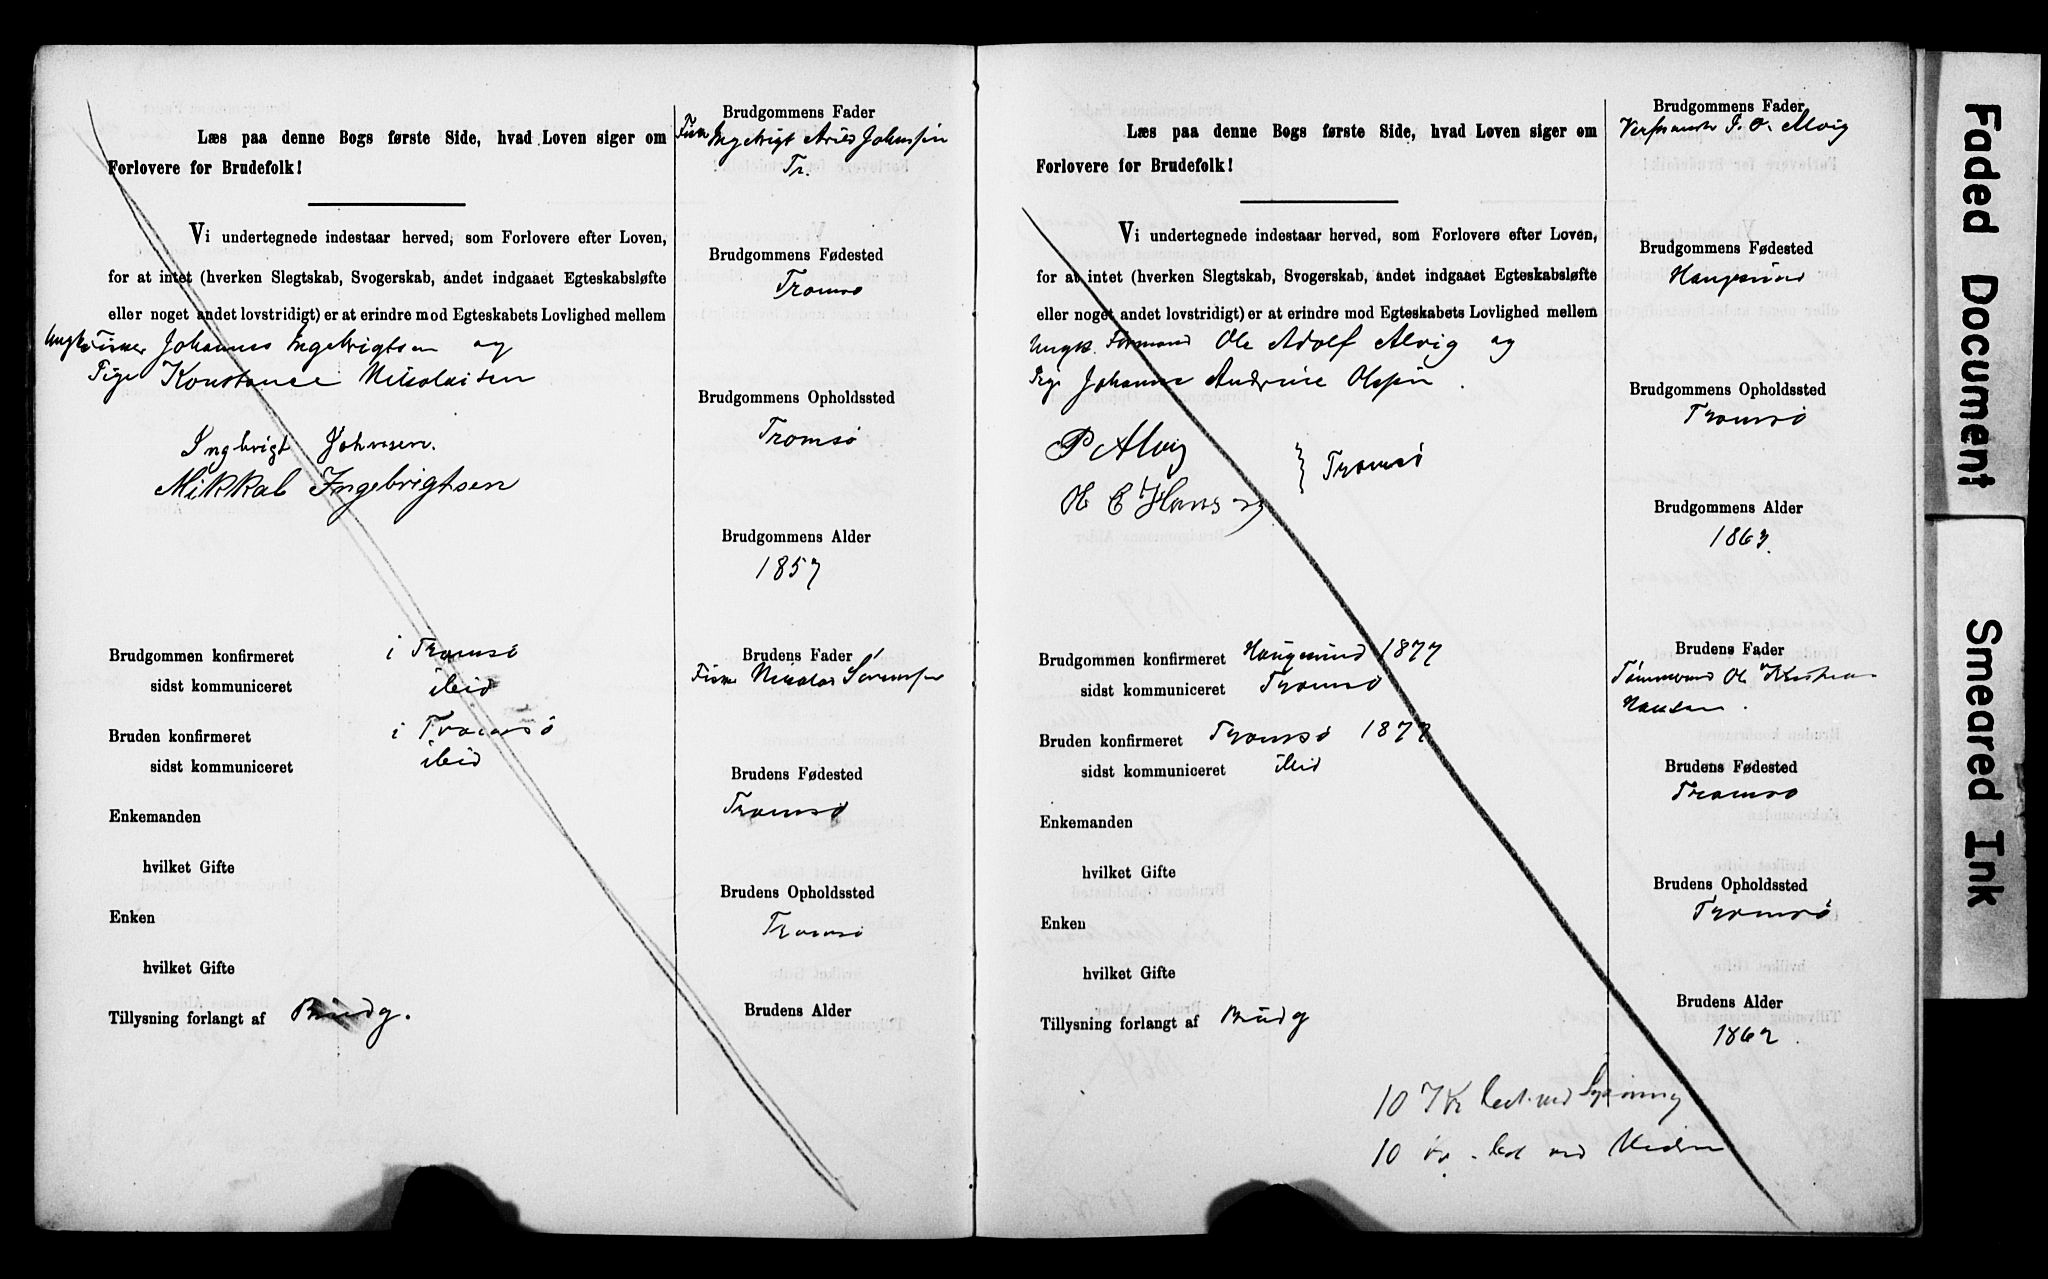 Læs paa denne Bogs første Side, hvad Loven siger om
Forlovere for Brudefolk!
Vi undertegnede indestaar herved, som Forlovere efter Loven,
for at intet (hverken Slegtskab, Svogerskab, andet indgaaet Egteskabsløfte
eller noget andet lovstridigt) er at erindre mod Egteskabets Lovlighed mellem
Johannes Ingebrigtsen og
Pige Konstance Nikolaisen
Ingbrigt Johnsen.
Mikkal Ingebrigtsen
Brudgommen konfirmeret i Tromsø
sidst kommuniceret ibid
Bruden konfirmeret i Tromsø
sidst kommuniceret ibid
Enkemanden
hvilket Gifte
Enken
hvilket Gifte
Tillysning forlangt af Brudg.
Brudgommens Fader
Ingebrigt Johnssen
Tr.
Brudgommens Fødested
Tromsø
Brudgommens Opholdssted
Tromsø
Brudgommens Alder
1857
Brudens Fader
Nikolai Sørenssen
Brudens Fødested
Tromsø
Brudens Opholdssted
Tromsø
Brudens Alder
Læs paa denne Bogs første Side, hvad Loven siger om
Forlovere for Brudefolk!
Vi undertegnede indestaar herved, som Forlovere efter Loven,
for at intet (hverken Slegtskab, Svogerskab, andet indgaaet Egteskabsløfte
eller noget andet lovstridigt) er at erindre mod Egteskabets Lovlighed mellem
Ungk. Formand Ole Adolf Alvig og
Pige Johanne Andrine Olssen.
P Alvig
H E Hansen
Tromsø
Brudgommen konfirmeret Haugesund 1877
sidst kommuniceret Tromsø
Bruden konfirmeret Tromsø 1877
sidst kommuniceret ibid
Enkemanden
hvilket Gifte
Enken
hvilket Gifte
Tillysning forlangt af Brudg
10 Kr
10 ved
Brudgommens Fader
O. Alvig
Brudgommens Fødested
Haugesund
Brudgommens Opholdssted
Tromsø
Brudgommens Alder
1863.
Brudens Fader
Tømmermd Ole Kristian
Hansen.
Brudens Fødested
Tromsø
Brudens Opholdssted
Tromsø
Brudens Alder
1862.
Faded Document
Smeared Ink